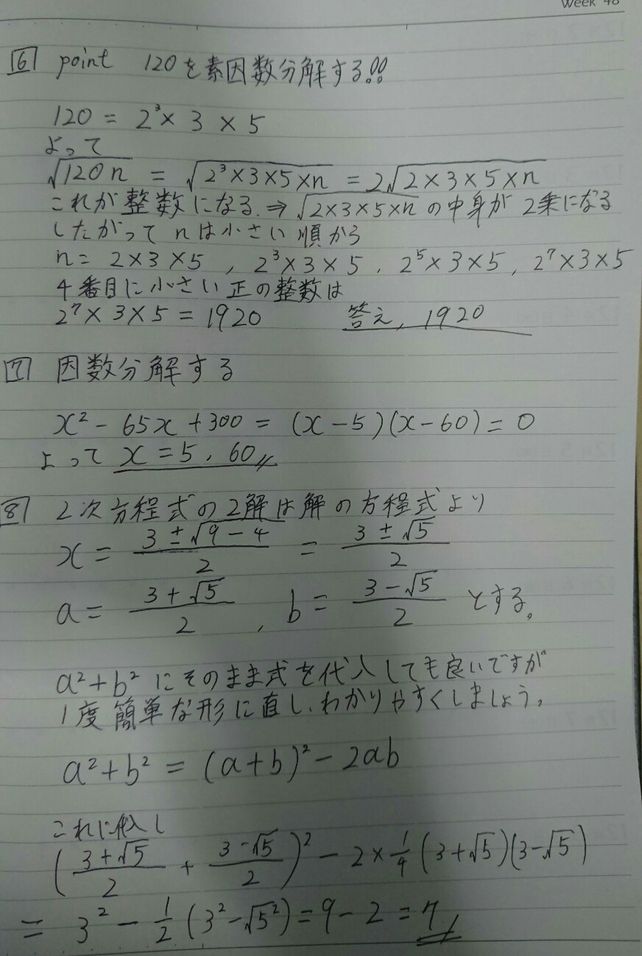 Week 48
6 point 120を素因数分解する!!
120 = 2³ × 3 × 5
よって
√(120n) = √(2³×3×5×n) = 2√(2×3×5×n)
これが整数になる.⇒√(2×3×5×n)の中身が2乗になる
したがってnは小さい順から
n = 2×3×5 , 2³×3×5 , 2⁵×3×5 , 2⁷×3×5
4番目に小さい正の整数は
2⁷×3×5 = 1920 答え, 1920
7 因数分解する
x² - 65x + 300 = (x-5)(x-60) = 0
よって x = 5 , 60
8 2次方程式の2解は解の方程式より
x = (3±√(9-4))/2 = (3±√5)/2
a = (3+√5)/2 , b = (3-√5)/2 とする。
a²+b² にそのまま式を代入しても良いですが
1度簡単な形に直し、わかりやすくしましょう。
a²+b² = (a+b)² - 2ab
これに代入し
((3+√5)/2 + (3-√5)/2)² - 2×1/4(3+√5)(3-√5)
= 3² - 1/2(3²-√5²) = 9 - 2 = 7